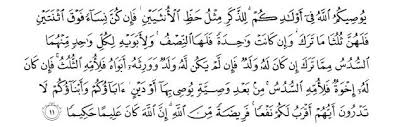 يُوصِيكُمُ ٱللَّهُ فِىٓ أَوْلَـٰدِكُمْ ۖ لِلذَّكَرِ مِثْلُ حَظِّ ٱلْأُنثَيَيْنِ ۚ فَإِن كُنَّ نِسَآءً فَوْقَ ٱثْنَتَيْنِ
فَلَهُنَّ ثُلُثَا مَا تَرَكَ ۖ وَإِن كَانَتْ وَٰحِدَةً فَلَهَا ٱلنِّصْفُ ۚ وَلِأَبَوَيْهِ لِكُلِّ وَٰحِدٍ مِّنْهُمَا
ٱلسُّدُسُ مِمَّا تَرَكَ إِن كَانَ لَهُۥ وَلَدٌ ۚ فَإِن لَّمْ يَكُن لَّهُۥ وَلَدٌ وَوَرِثَهُۥٓ أَبَوَاهُ فَلِأُمِّهِ ٱلثُّلُثُ ۚ فَإِن كَانَ
لَهُۥٓ إِخْوَةٌ فَلِأُمِّهِ ٱلسُّدُسُ ۚ مِنۢ بَعْدِ وَصِيَّةٍ يُوصِى بِهَآ أَوْ دَيْنٍ ۗ ءَابَآؤُكُمْ وَأَبْنَآؤُكُمْ لَا
تَدْرُونَ أَيُّهُمْ أَقْرَبُ لَكُمْ نَفْعًا ۚ فَرِيضَةً مِّنَ ٱللَّهِ ۗ إِنَّ ٱللَّهَ كَانَ عَلِيمًا حَكِيمًا ١١